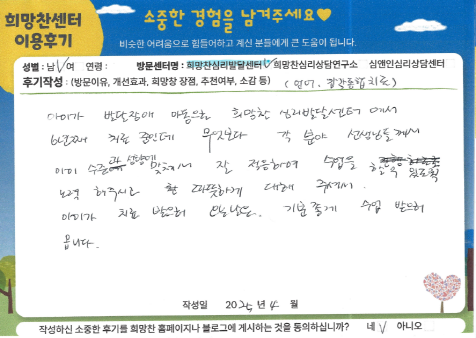 희망찬센터
이용후기
소중한 경험을 남겨주세요♥
비슷한 어려움으로 힘들어하고 계신 분들에게 큰 도움이 됩니다.
성별 : 남 √ 여 연령 : 방문센터명 : 희망찬심리발달센터 √ 희망찬심리상담연구소 심앤인심리상담센터
후기작성 : (방문이유, 개선효과, 희망찬 장점, 추천여부, 소감 등) (언어, 감각통합치료)
아이가 발달장애 아동으로 희망찬 심리발달센터에서
6년째 치료 중인데 무엇보다 각 분야 선생님들께서
아이 수준과 성향에 맞춰서 잘 적응하여 수업을
노력 해주시고 또한 따뜻하게 대해 주셔서.
아이가 치료 받으러 오는날은 기분좋게 수업 받으러
옵니다.
작성일 2025 년 4 월
작성하신 소중한 후기를 희망찬 홈페이지나 블로그에 게시하는 것을 동의하십니까? 네 √ 아니오